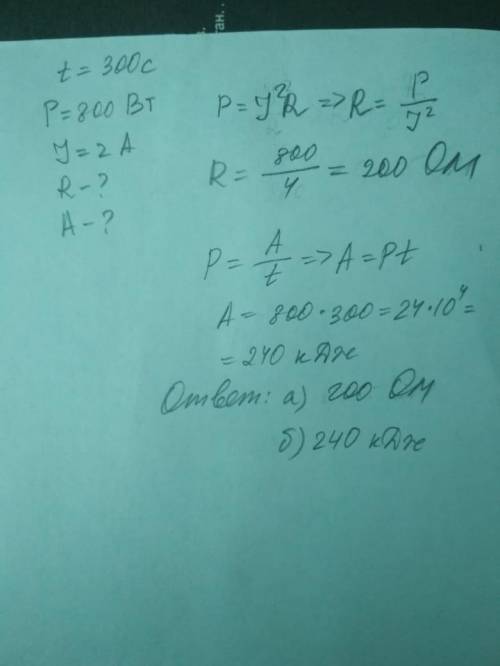 тан.
t = 300с
P = 800 Вт
J = 2 А
R - ?
A - ?
P = J²R => R = P/J²
R = 800/4 = 200 Ом
P = A/t => A = Pt
A = 800 · 300 = 24 · 10⁴ =
= 240 кДж
Ответ: а) 200 Ом
б) 240 кДж